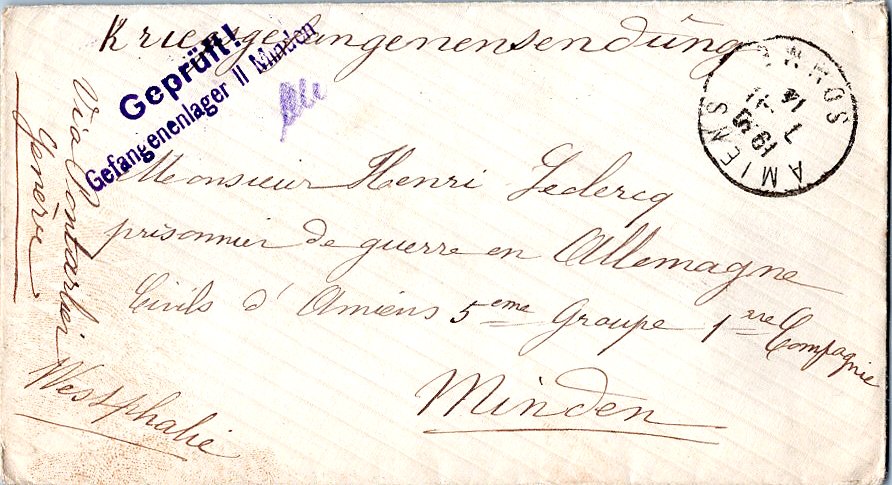 Kriegsgefangenensendung
Geprüft!
Gefangenenlager II Minden
Via Pontarlier
Genève
Monsieur Henri Leclercq
prisonnier de guerre en Allemagne
Civils d'Amiens 5eme Groupe 1ere Compagnie
Minden
Westphalie
AMIENS
SOMME